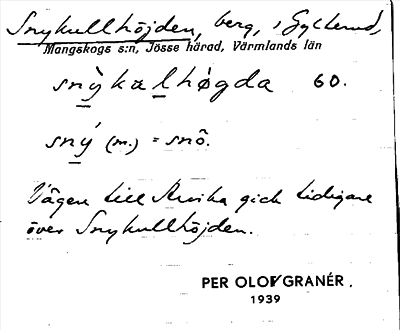 Snykullhöjden, berg, i Gylterud,
Mangskogs s:n, Jösse härad, Värmlands län
snỳkalhǿgda 60.
sný (m.) = snö̂.
Vägen till Arvika gick tidigare
över Snykullhöjden.
PER OLOF GRANÉR.
1939